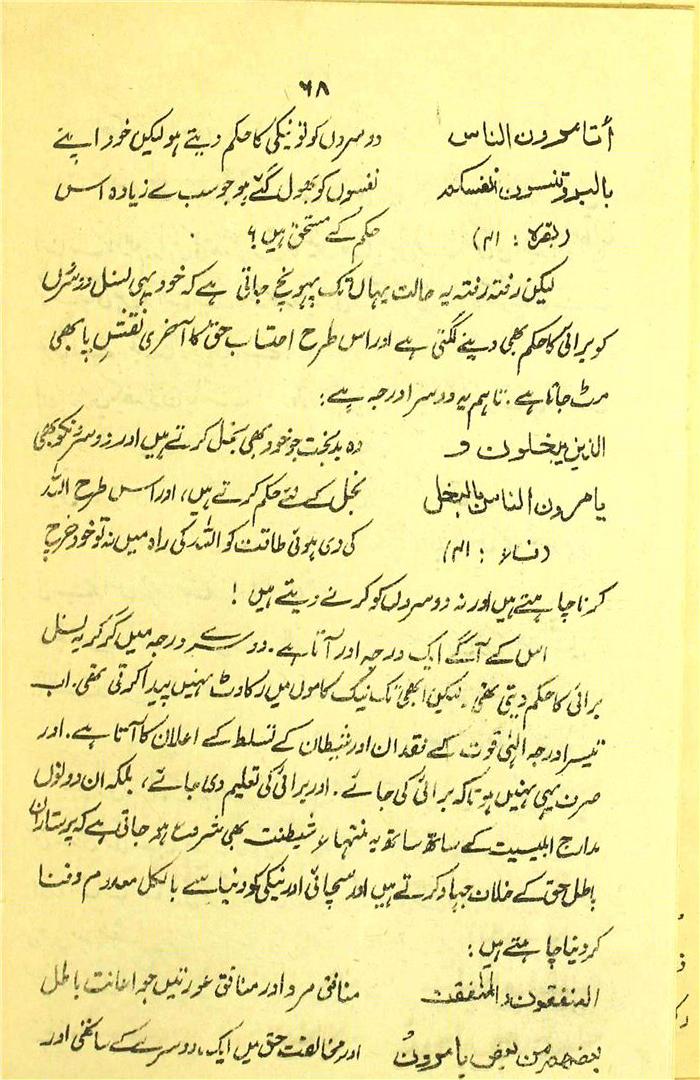 ۶۸
أتامرون الناس دوسروں کو تو نیکی کا حکم دیتے ہو لیکن خود اپنے
بالبر وتنسون انفسکم نفسوں کو بھول گئے ہو جو سب سے زیادہ اس
(بقرۃ : ۴۱) حکم کے مستحق ہیں؟
لیکن رفتہ رفتہ یہ حالت یہاں تک پہونچ جاتی ہے کہ خود یہی نسل دوسروں
کو برائی کا حکم بھی دینے لگتی ہے اور اس طرح احتساب حق کا آخری نقش پا بھی
مٹ جاتا ہے. تاہم یہ دوسرا درجہ ہے:
الذین یبخلون و وہ بدبخت جو خود بھی بخل کرتے ہیں اور دوسرونکو بھی
یامرون الناس بالبخل بخل کے لئے حکم کرتے ہیں، اور اس طرح اللہ
(نساء : ۴۱) کی دی ہوئی طاقت کو اللہ کی راہ میں نہ تو خود خرچ
کرنا چاہتے ہیں اور نہ دوسروں کو کرنے دیتے ہیں !
اس کے آگے ایک درجہ اور آتا ہے. دوسرے درجہ میں گر کر یہ نسل
برائی کا حکم دیتی تھی. لیکن ابھی تک نیک کاموں میں رکاوٹ نہیں پیدا کرتی تھی. اب
تیسرا درجہ الٰہی قوت کے فقدان اور شیطان کے تسلط کے اعلان کا آتا ہے. اور
صرف یہی نہیں ہوتا کہ برائی کی جائے. اور برائی کی تعلیم دی جائے، بلکہ ان دونوں
مدارج ابلیسیت کے ساتھ ساتھ یہ منتہاء شیطنت بھی شروع ہو جاتی ہے کہ پرستاران
باطل حق کے خلاف جہاد کرتے ہیں اور سچائی اور نیکی کو دنیا سے بالکل معدوم و فنا
کر دینا چاہتے ہیں:
المنفقون والمنفقت منافق مرد اور منافق عورتیں جو اعانت باطل
بعضھم من بعض یامرون اور مخالفت حق میں ایک دوسرے کے ساتھی اور